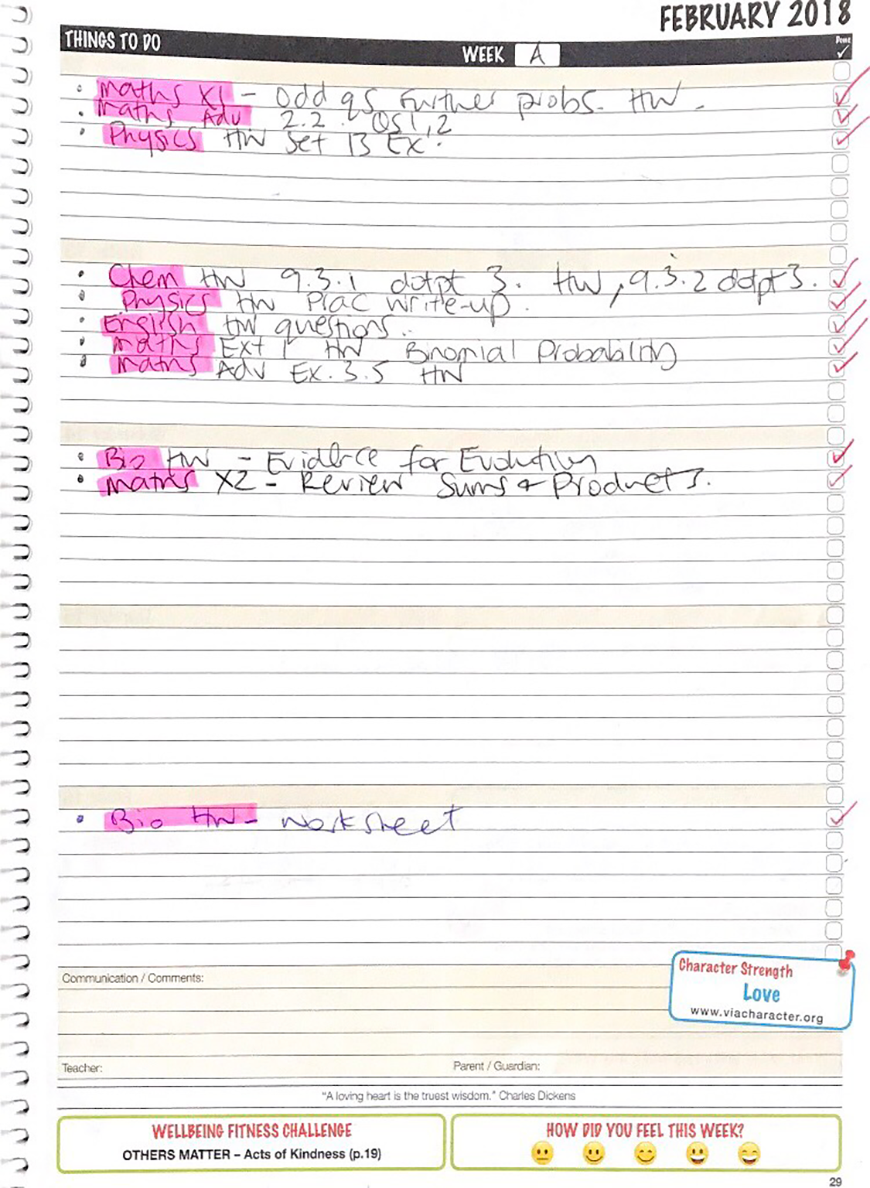 FEBRUARY 2018
THINGS TO DO
WEEK A
Done
• Maths X1 - Odd qs Further probs. HW.
• Maths Adv 2.2 QS 1,2
• Physics HW Set 13 Ex.
• Chem HW 9.3.1 dotpt 3. HW, 9.3.2 dotpt 3.
• Physics HW Prac write-up.
• English HW questions..
• Maths Ext 1 HW Binomial Probability
• Maths Adv Ex. 3.5 HW
• Bio HW - Evidence for Evolution
• Maths X2 - Review Sums + Products.
• Bio HW - worksheet
Communication / Comments:
Character Strength
Love
www.viacharacter.org
Teacher: Parent / Guardian:
"A loving heart is the truest wisdom." Charles Dickens
WELLBEING FITNESS CHALLENGE
OTHERS MATTER – Acts of Kindness (p.19)
HOW DID YOU FEEL THIS WEEK?
29